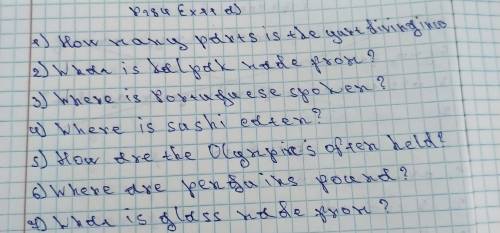 P 184 Ex 11 d)
1) How many parts is the yurt diving into
2) What is kalpak made from?
3) Where is Portuguese spoken?
4) Where is sashi eaten?
5) How are the Olympics often held?
6) Where are penguins pound?
7) What is glass made from?